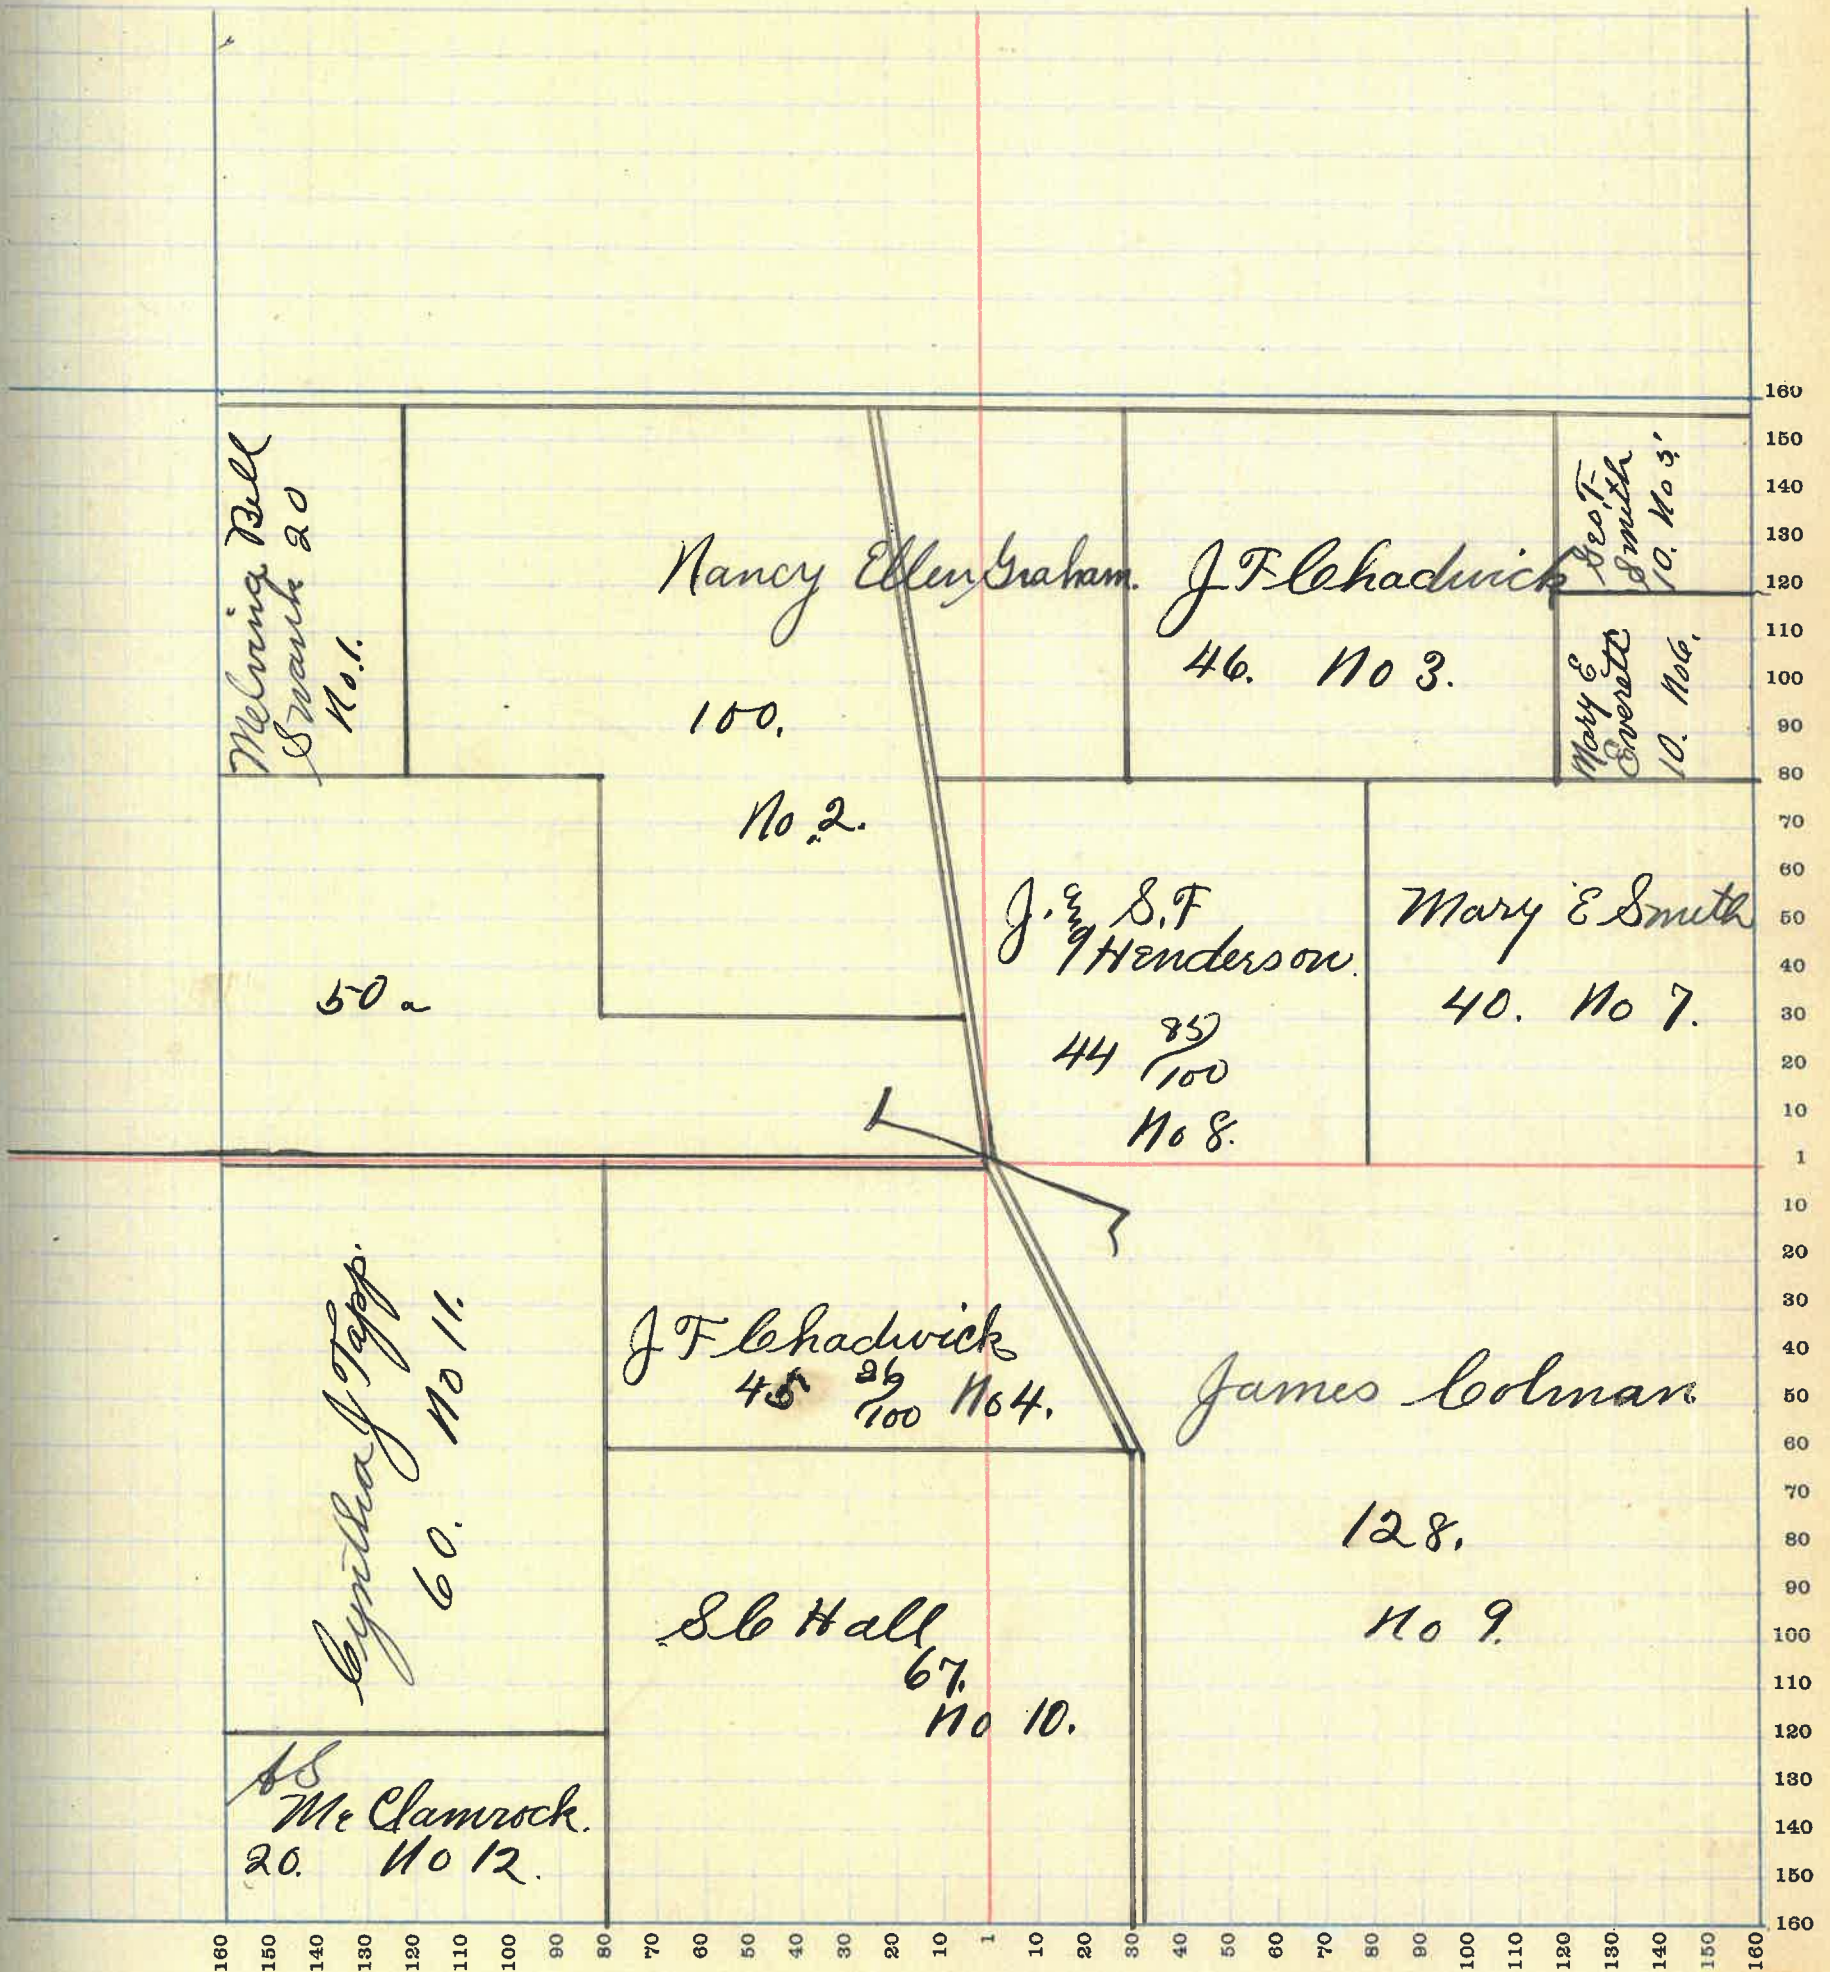 Melvina Bell
Swank 20
No. 1.
Nancy Ellen Graham.
100.
No. 2.
J F Chadwick
46. No 3.
Geo. T
Smith
10. No 5.
Mary E
Everett
10. No 6.
50 a
J. & S. F
Henderson.
44 85/100
No 8.
Mary E Smith
40. No 7.
Cynthia J Tapp.
60. No 11.
J F Chadwick
45 26/100 No 4.
James Colman
128.
No 9.
S C Hall
67.
No 10.
A S
Mc Clamrock.
20. No 12.
160
150
140
130
120
110
100
90
80
70
60
50
40
30
20
10
1
10
20
30
40
50
60
70
80
90
100
110
120
130
140
150
160
160 150 140 130 120 110 100 90 80 70 60 50 40 30 20 10 1 10 20 30 40 50 60 70 80 90 100 110 120 130 140 150 160